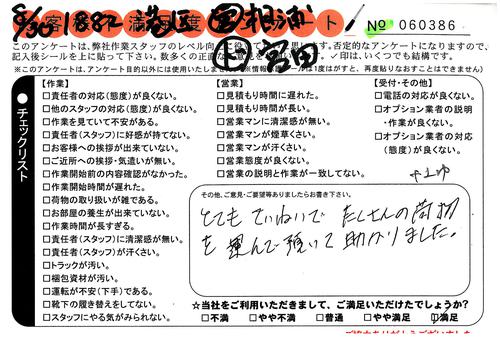 8/30 客 1882 満 度 ト No 060386
このアンケートは、弊社作業スタッフのレベル向
否定的なアンケートになりますので、
記入後シールを上に貼って下さい。
✓印は、いくつでも結構です。
※このアンケートは、アンケート目的以外には使用いたしません。
1度はがすと、再度貼りなおすことはできません)
チェックリスト
【作業】
□責任者の対応(態度)が良くない。
□他のスタッフの対応(態度)が良くない。
□作業を見ていて不安がある。
□責任者(スタッフ)に好感が持てない。
□お客様への挨拶が出来ていない。
□ご近所への挨拶・気遣いが無い。
□作業開始前の内容確認がなかった。
□作業開始時間が遅れた。
□荷物の取り扱いが雑である。
□お部屋の養生が出来ていない。
□作業時間が長すぎる。
□責任者(スタッフ)に清潔感が無い。
□責任者(スタッフ)が汗くさい。
□トラックが汚い。
□梱包資材が汚い。
□運転が不安(下手)である。
□靴下の履き替えをしてない。
□スタッフにやる気がみられない。
【営業】
□見積もり時間に遅れた。
□見積もり時間が長い。
□営業マンに清潔感が無い。
□営業マンが煙草くさい。
□営業マンが汗くさい。
□営業態度が良くない。
□営業の説明と作業が一致してない。
【受付・その他】
□電話の対応が良くない。
□オプション業者の説明
・作業が良くない。
□オプション業者の対応
(態度)が良くない。
その他、ご意見・ご要望等ありましたらお書き下さい。
とてもていねいで たくさんの荷物
を運んで頂いて助かりました。
☆当社をご利用いただきまして、ご満足いただけたでしょうか?
□不満 □やや不満 □普通 □やや満足 ☑満足